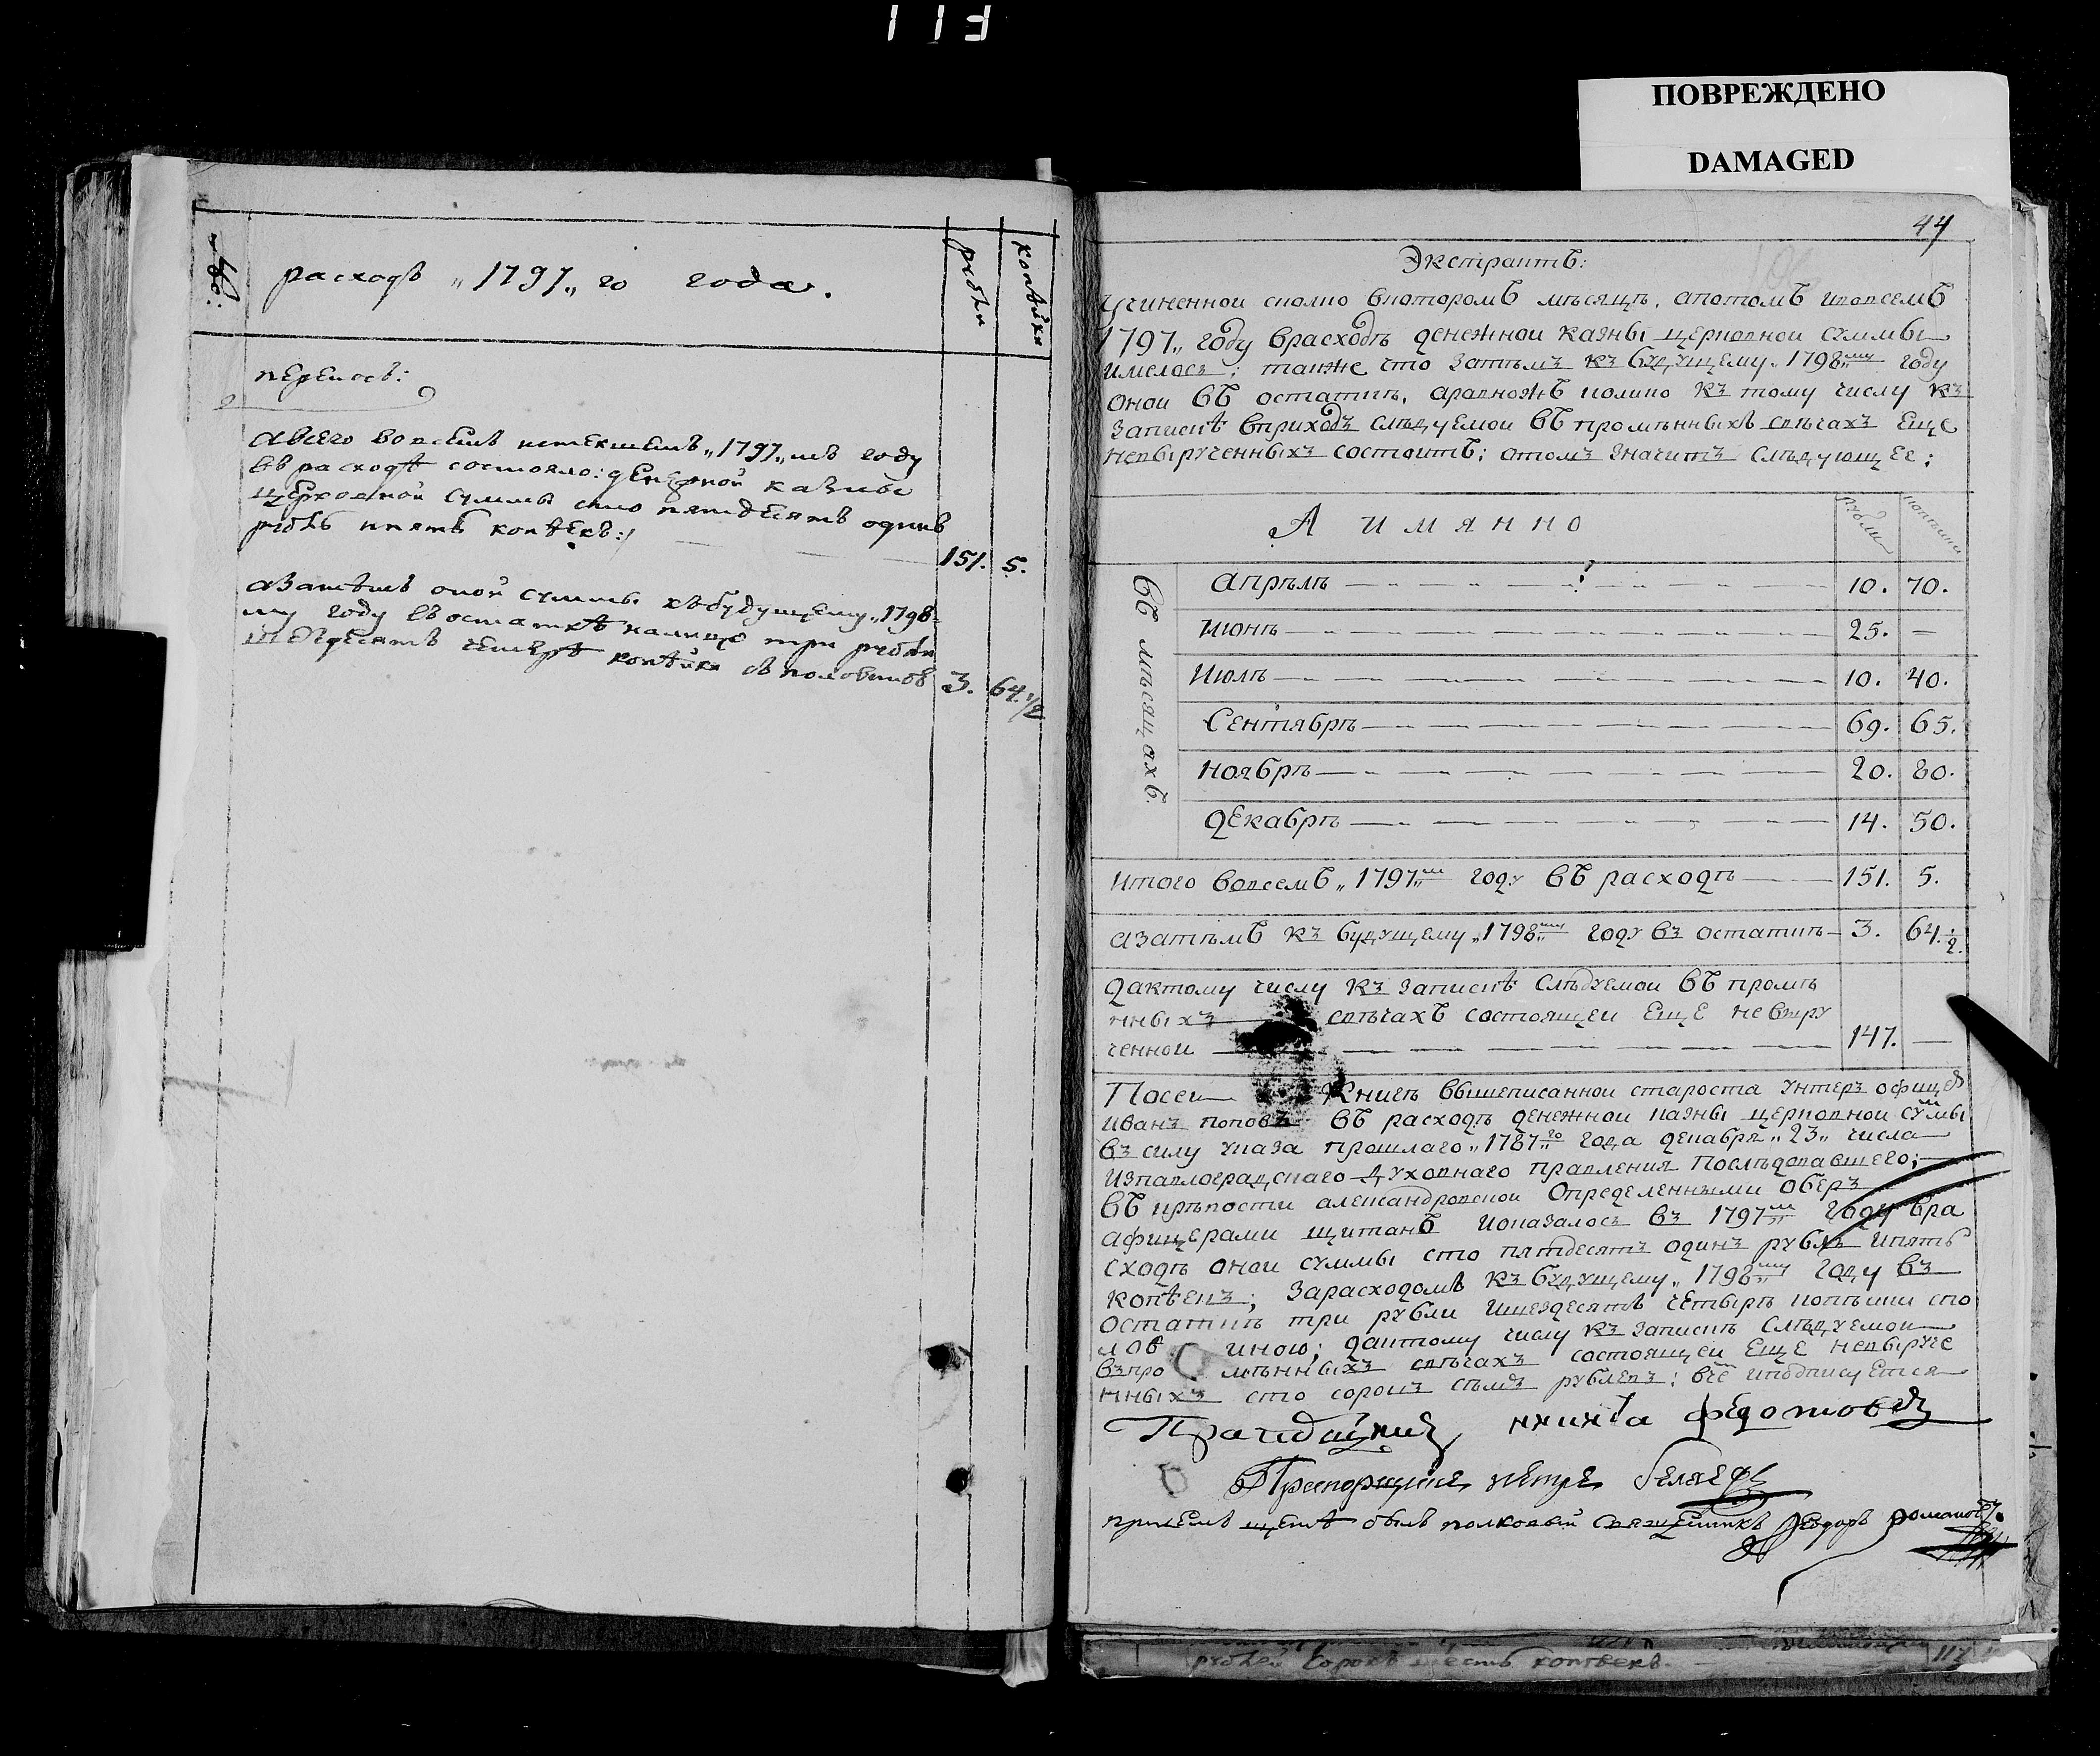 113
ПОВРЕЖДЕНО
DAMAGED
расходъ „1797„ го года.
рубли
копѣйки
переносъ:
авсего вовсемъ истекшемъ „1797„ мъ году
въ расходѣ состояло: денежной казны
церковной суммы сто пятдесятъ одинъ
рубль пять копѣекъ:
151. 5.
азатѣмъ оной суммы къ будущему „1798
му году въ остаткѣ налицо три рубли
шездесятъ четыре копѣйки съ половиною
3. 64 1/2
44
Экстрактъ:
Учиненной сколко вкоторомъ мѣсяцѣ, апотомъ ивовсемъ
1797„ году врасходѣ денежной казны церковной суммы
имелось; также что затѣмъ къ будущему „1798му году
оной въ остаткѣ, аравножъ колико къ тому числу къ
записке вприходъ слѣдуемой въ промѣнныхъ свѣчахъ еще
невырученныхъ состоитъ; отомъ значитъ слѣдующее:
А имянно
рубли
копѣйки
въ мѣсяцахъ.
апрѣлѣ 10. 70.
Июнѣ 25. —
Июлѣ 10. 40.
Сентябрѣ 69. 65.
ноябрѣ 20. 80.
декабрѣ 14. 50.
итого вовсемъ „1797мъ году въ расходѣ 151. 5.
азатѣмъ къ будущему „1798му году въ остаткѣ 3. 64. 1/2.
дактому числу къ записке слѣдуемой въ промѣ
нныхъ свѣчахъ состоящей еще невыру
ченной 147. —
Посей книгѣ вышеписанной староста унтеръ офицеръ
иванъ поповъ въ расходѣ денежной казны церковной суммы
въ силу указа прошлаго „1787го года декабря „23„ числа
изпавлоградскаго духовнаго правления послѣдовавшего;
въ крѣпости александровской определенными оберъ
афицерами щитанъ ипоказалось въ 1797мъ году вра
сходѣ оной суммы сто пятдесятъ одинъ рубль ипять
копѣекъ; зарасходомъ къ будущему „1798му году въ
остаткѣ три рубли ишездесятъ четырѣ копѣйки спо
лов иною; дактому числу къ записке слѣдуемой
впро мѣнныхъ свѣчахъ состоящей еще невыруче
нныхъ сто сорокъ сѣмъ рублевъ; вчемъ иподписуется
никита федотовъ
Прапорщикъ петръ беляевъ
присемъ щетѣ былъ полковый священникъ Феодоръ романовъ.
рублей сорокъ шесть копѣекъ.
117